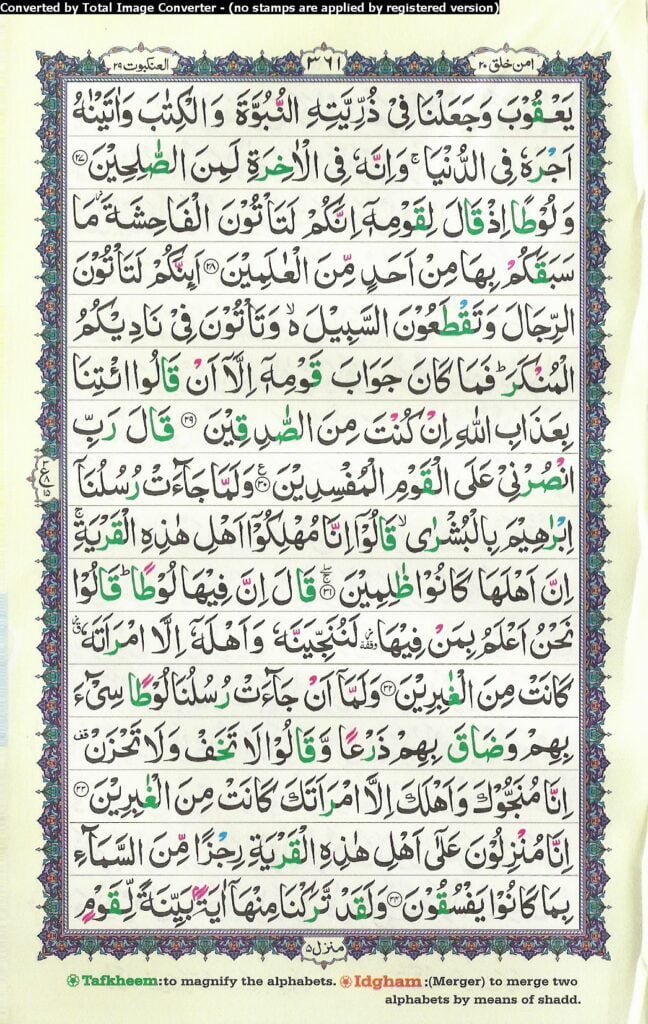 Converted by Total Image Converter - (no stamps are applied by registered version)
العنكبوت ٢٩
٣٦١
امن خلق ٢٠
يَعْقُوْبَ وَجَعَلْنَا فِىْ ذُرِّيَّتِهِ النُّبُوَّةَ وَالْكِتٰبَ وَاٰتَيْنٰهُ
اَجْرَهٗ فِى الدُّنْيَا ۚ وَاِنَّهٗ فِى الْاٰخِرَةِ لَمِنَ الصّٰلِحِيْنَ ﴿٢٧﴾
وَلُوْطًا اِذْ قَالَ لِقَوْمِهٖٓ اِنَّكُمْ لَتَاْتُوْنَ الْفَاحِشَةَ ۫ مَا
سَبَقَكُمْ بِهَا مِنْ اَحَدٍ مِّنَ الْعٰلَمِيْنَ ﴿٢٨﴾ اَئِنَّكُمْ لَتَاْتُوْنَ
الرِّجَالَ وَتَقْطَعُوْنَ السَّبِيْلَ ۙ وَتَاْتُوْنَ فِىْ نَادِيْكُمُ
الْمُنْكَرَ ؕ فَمَا كَانَ جَوَابَ قَوْمِهٖٓ اِلَّآ اَنْ قَالُوا ائْتِنَا
بِعَذَابِ اللّٰهِ اِنْ كُنْتَ مِنَ الصّٰدِقِيْنَ ﴿٢٩﴾ قَالَ رَبِّ
انْصُرْنِىْ عَلَى الْقَوْمِ الْمُفْسِدِيْنَ ﴿٣٠﴾ وَلَمَّا جَآءَتْ رُسُلُنَآ
اِبْرٰهِيْمَ بِالْبُشْرٰى ۙ قَالُوْٓا اِنَّا مُهْلِكُوْٓا اَهْلِ هٰذِهِ الْقَرْيَةِ ۚ
اِنَّ اَهْلَهَا كَانُوْا ظٰلِمِيْنَ ﴿٣١﴾ قَالَ اِنَّ فِيْهَا لُوْطًا ؕ قَالُوْا
نَحْنُ اَعْلَمُ بِمَنْ فِيْهَا ۫ لَنُنَجِّيَنَّهٗ وَاَهْلَهٗٓ اِلَّا امْرَاَتَهٗ
كَانَتْ مِنَ الْغٰبِرِيْنَ ﴿٣٢﴾ وَلَمَّآ اَنْ جَآءَتْ رُسُلُنَا لُوْطًا سِىْٓءَ
بِهِمْ وَضَاقَ بِهِمْ ذَرْعًا وَّقَالُوْا لَا تَخَفْ وَلَا تَحْزَنْ
اِنَّا مُنَجُّوْكَ وَاَهْلَكَ اِلَّا امْرَاَتَكَ كَانَتْ مِنَ الْغٰبِرِيْنَ ﴿٣٣﴾
اِنَّا مُنْزِلُوْنَ عَلٰٓى اَهْلِ هٰذِهِ الْقَرْيَةِ رِجْزًا مِّنَ السَّمَآءِ
بِمَا كَانُوْا يَفْسُقُوْنَ ﴿٣٤﴾ وَلَقَدْ تَّرَكْنَا مِنْهَآ اٰيَةًۢ بَيِّنَةً لِّقَوْمٍ
منزل ٥
Tafkheem:to magnify the alphabets. Idgham :(Merger) to merge two
alphabets by means of shadd.